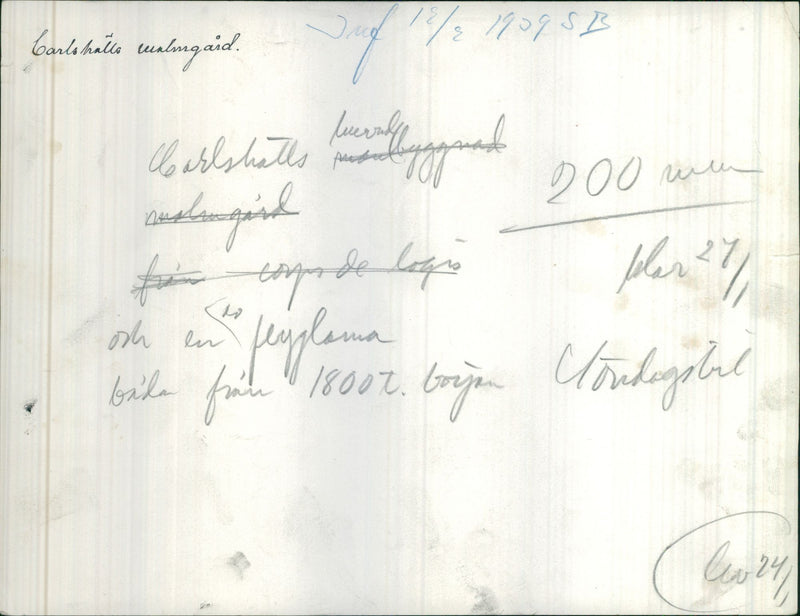 Carlshälls malmgård.
Inf 12/2 1939 SB
Carlshälls huvudbyggnad
malmgård
från corps de logis
och en av flyglarna
båda från 1800t. början
200 mm
klar 27/1
Söndagsbil
Lev 24/1